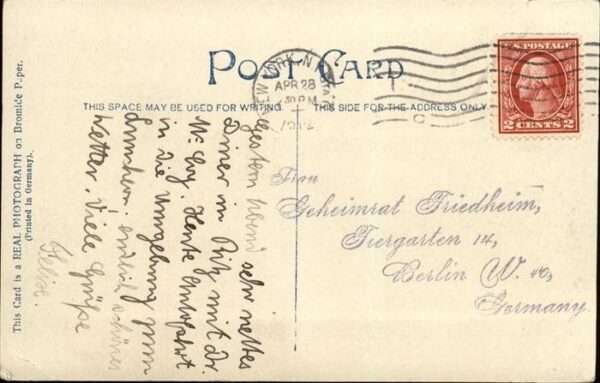 POST CARD
THIS SPACE MAY BE USED FOR WRITING.
THIS SIDE FOR THE ADDRESS ONLY.
NEW YORK, N.Y.
APR 28
PM
U.S. POSTAGE
2 CENTS 2
This Card is a REAL PHOTOGRAPH on Bromide Paper.
(Printed in Germany).
Gestern Abend sehr nettes
Diner im Ritz mit Dr.
Mc. Heute Autofahrt
in die Umgebung zum
endlich schönes
Wetter. Viele Grüße
Felix.
Frau
Geheimrat Friedheim,
Tiergarten 14,
Berlin W. 10,
Germany.